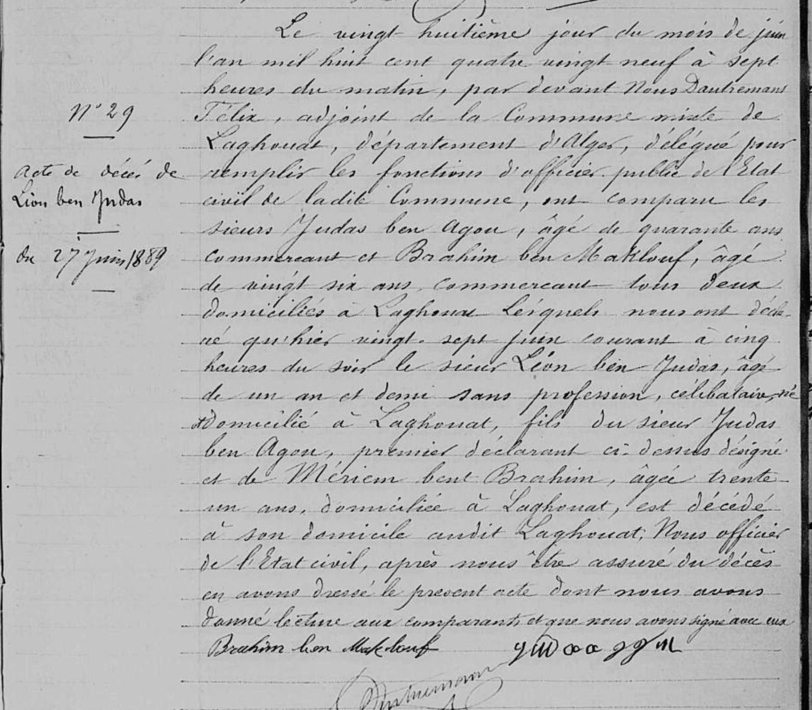 N° 29
Acte de décés de
Léon ben Judas
du 27 Juin 1889
Le vingt huitième jour du mois de juin
l'an mil huit cent quatre vingt neuf à sept
heures du matin, par devant Nous Dautremant
Félix, adjoint de la Commune mixte de
Laghouat, département d'Alger, délégué pour
remplir les fonctions d'officier public de l'Etat
civil de ladite Commune, ont comparu les
sieurs Judas ben Agou, âgé de quarante ans
commercant et Brahim ben Maklouf, âgé
de vingt six ans, commercant tous deux
domiciliés à Laghouat Lesquels nous ont décla-
ré qu'hier vingt-sept juin courant à cinq
heures du soir le sieur Léon ben Judas, âgé
de un an et demi sans profession, célibataire, né
et domicilié à Laghouat, fils du sieur Judas
ben Agou, premier déclarant ci-dessus désigné
et de Mériem bent Brahim, âgée trente
un ans, domiciliée à Laghouat, est décédé
à son domicile audit Laghouat; Nous officier
de l'Etat civil, après nous être assuré du décès
en avons dressé le present acte dont nous avons
donné lecture aux comparants et que nous avons signé avec eux
Brahim ben Maklouf